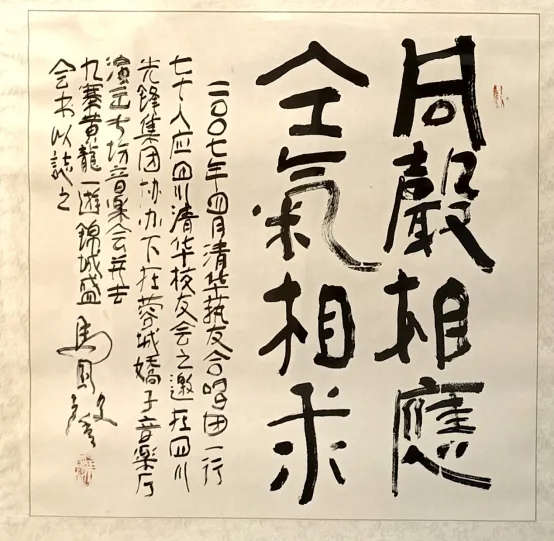 同聲相應
仝氣相求
二〇〇七年四月清华执友合唱团一行
七十人应四川清华校友会之邀在四川
先锋集团协办下在蓉城嬌子音樂厅
演出专场音樂会并去
九寨黄龍一遊錦城盛
会书以誌之
馬国馨